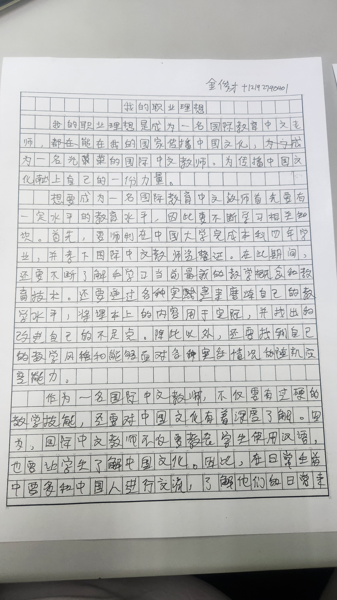 金俊才
我的职业理想
我的职业理想是成为一名国际教育中文老
师，都在能在我的国家传播中国文化，为
为一名光荣的国际中文教师。为传播中国文
化献上自己的一份力量。
想要成为一名国际教育中文教师首先要有
一定水平的教育水平，因此要不断学习相关知
识。首先，要顺利在中国大学完成本科四年学
业，并拿下国际中文教师资格证。在此期间，
还要不断了解和学习当前最新的教学概念和教
育技术。还要通过各种实践来磨练自己的教
学水平，将课本上的内容用于实际，并找出和
改进自己的不足点。除此以外，还要找到自己
的教学风格和能够应对各种突发情况的随机应
变能力。
作为一名国际中文教师，不仅需有过硬的
教学技能，还要对中国文化有着深度了解。因
为，国际中文教师不仅要教会学生使用汉语，
也要让学生了解中国文化。因此，在日常生活
中要多和中国人进行交流，了解他们的日常生